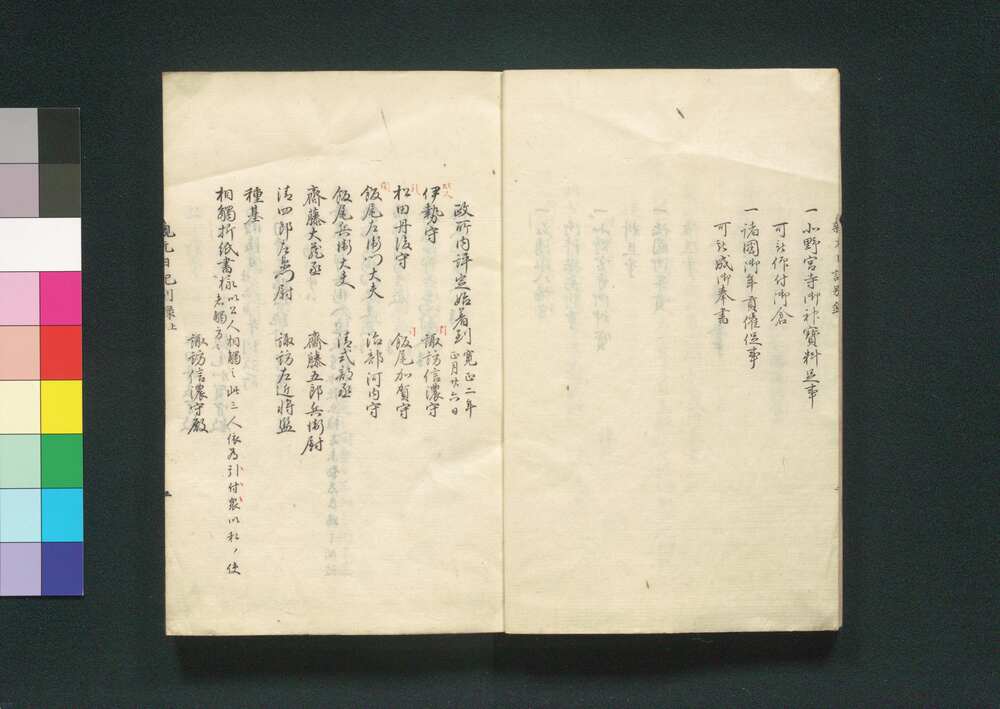 一小野宮寺御神寳料足事
可被仰付御倉
一諸國御年貢催促事
可被成御奉書
政所内評定始着到 寛正二年 正月廿六日
伊勢守 諏訪信濃守
松田丹後守 飯尾加賀守
飯尾左衛門大夫 治部河内守
飯尾兵衛大夫 清式部丞
齋藤大蔵丞 齋藤五郎兵衛尉
清四郎左衛門尉 諏訪左近将監
種基
相觸折紙書様以公人相觸之此三人依為引付衆以私ノ使
者觸
諏訪信濃守殿
親元日記別録上